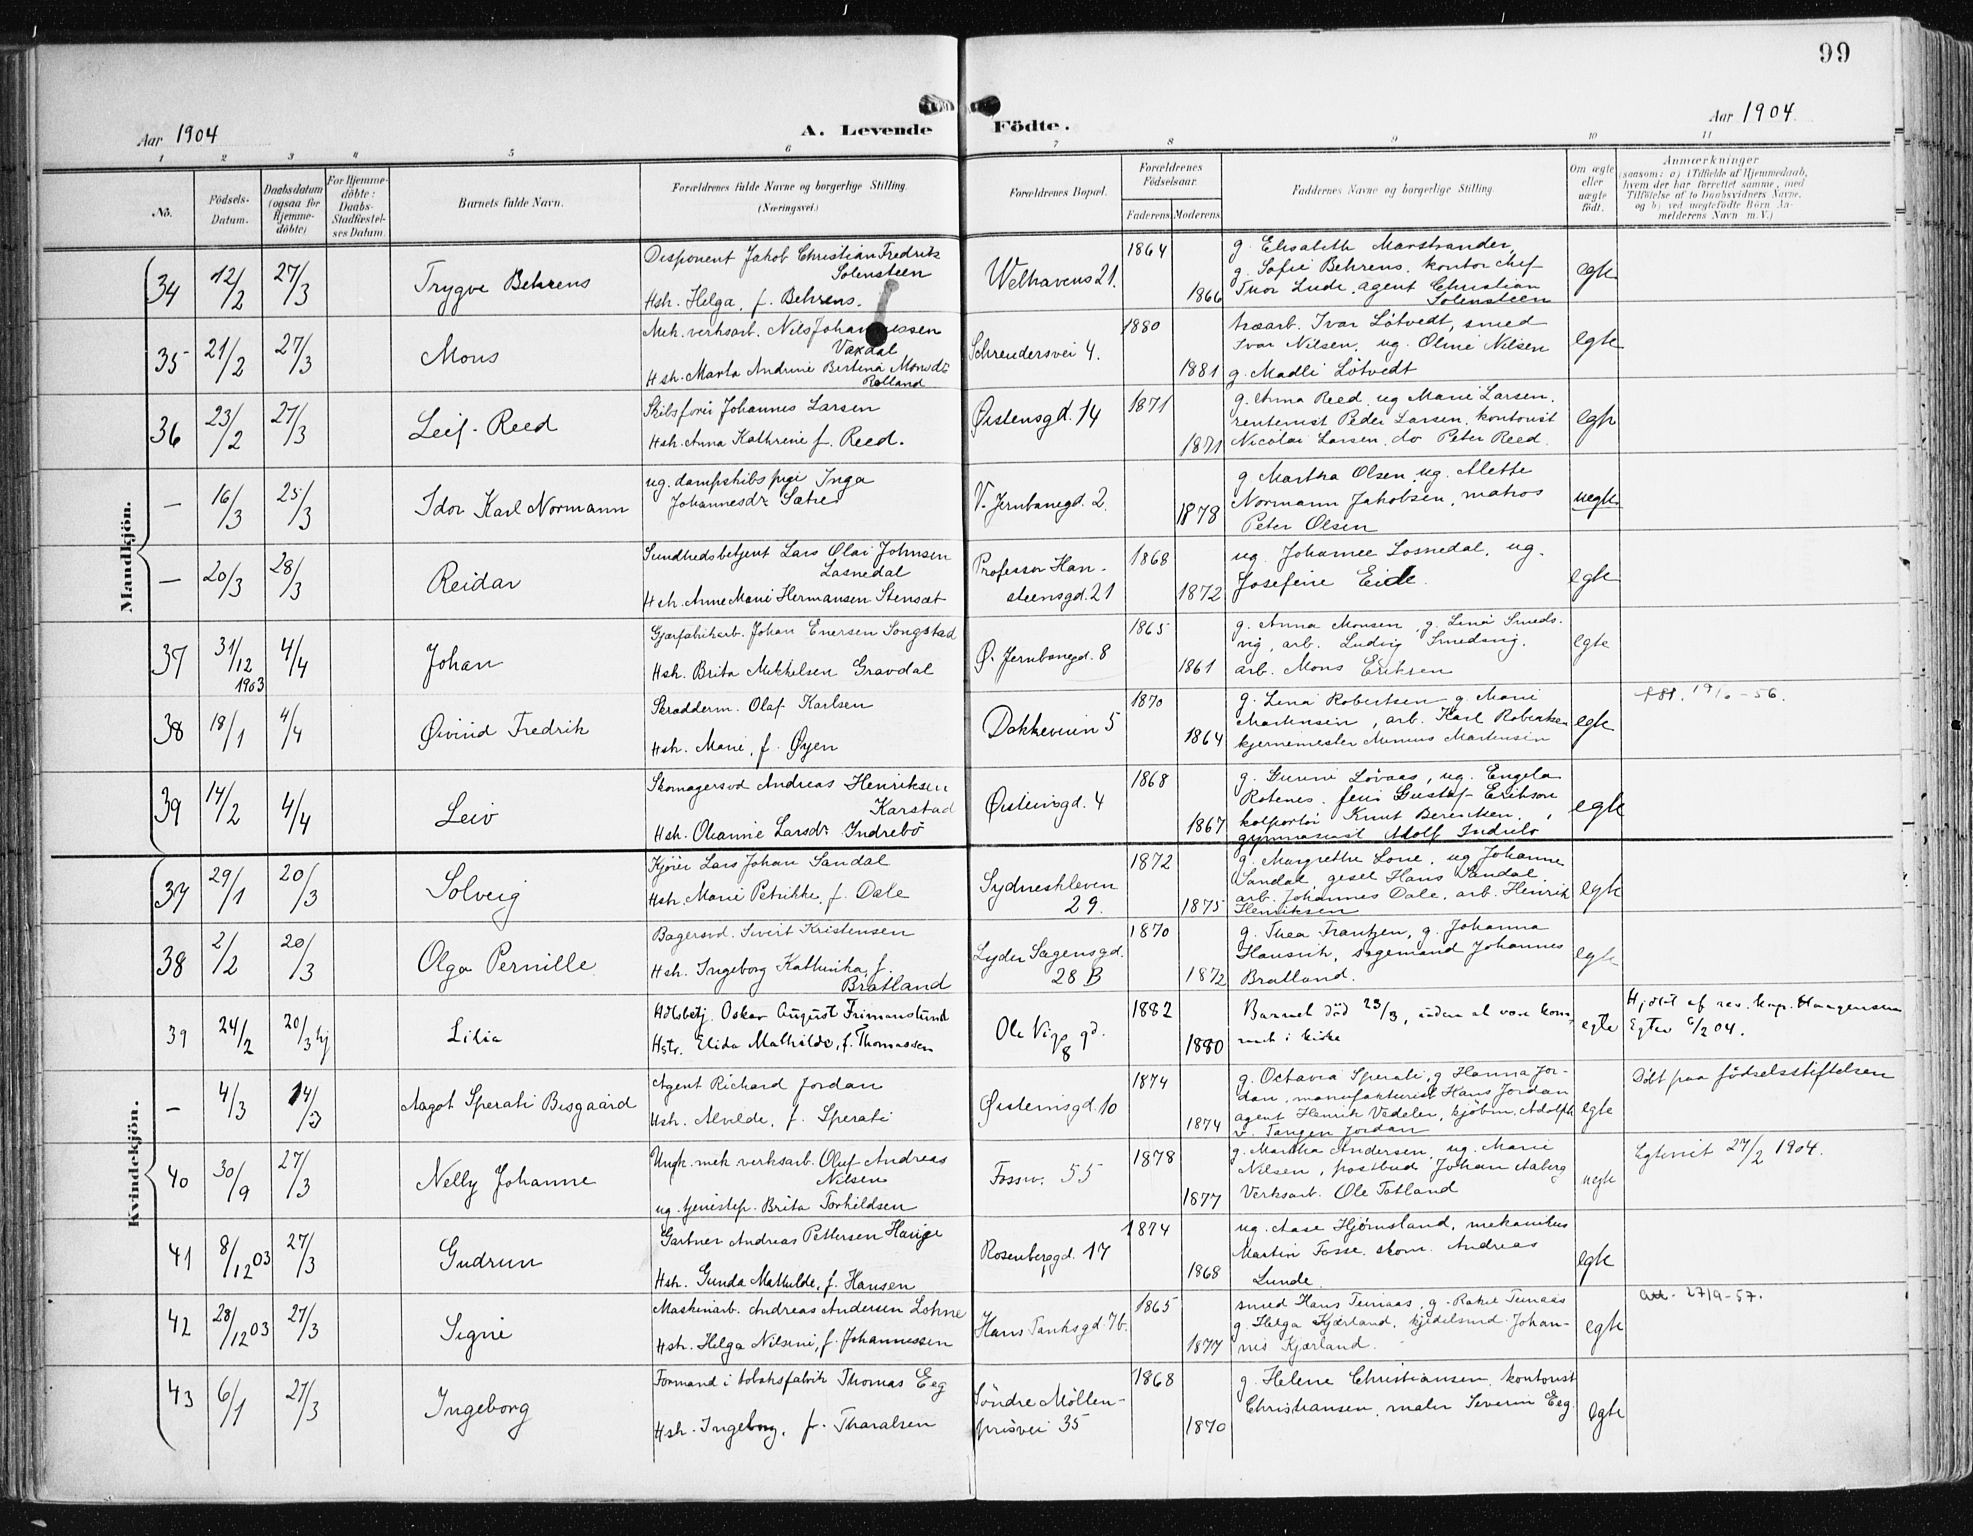 99
Aar 1904
A. Levende Födte.
Aar 1904
1 2 3 4 5 6 7 8 9 10 11
No.
Födsels-Datum.
Daabsdatum (ogsaa for Hjemme-döbte)
For Hjemme-döbte: Daabs-Stadfæstel-ses Datum.
Barnets fulde Navn.
Forældrenes fulde Navne og borgerlige Stilling.
(Næringsvei.)
Forældrenes Bopæl.
Forældrenes Födselsaar.
Faderens Moderens
Faddernes Navne og borgerlige Stilling.
Om ægte eller uægte födt.
Anmærkninger
(saasom: a) i Tilfælde af Hjemmedaab,
hvem der har forrettet samme, med
Tilföielse af to Daabsvidners Navne,
og b) ved uægtefödte Börn An-
melderens Navn m.V.)
Mandkjön.
34 12/2 27/3 Trygve Behrens
Disponent Jakob Christian Fredrik
Solensteen
Hstr. Helga, f. Behrens.
Welhavens 21.
1864
1866
g. Elisabeth Marstrander,
g. Sofie Behrens. kontorchef
Thor Lude, agent Christian
Solensteen
egte
35 21/2 27/3 Mons
Mek. verksarb. Nils Johannessen
Vaxdal
Hstr. Marta Andrine Bertina Monsdr
Rolland
Schreudersvei 4.
1880
1881
træarb. Ivar Lötvedt, smed
Ivar Nilsen, ug. Oline Nilsen
g. Madli Lötvedt
egte
36 23/2 27/3 Leif Reed
Skibsförer Johannes Larsen
Hstr. Anna Kathrine f. Reed.
Øistensgd. 14
1871
1871
g. Anna Reed, ug Marie Larsen,
rentenist Peder Larsen, kontorist
Nicolai Larsen, do Peter Reed.
egte
— 16/3 25/3 Idor Karl Normann
ug. dampskibspige Inga
Johannesdr Sætre
V. Jernbanegd. 2.
1878
g Martha Olsen, ug. Alette
Normann Jakobsen, matros
Peter Olsen
uegte
— 20/3 28/3 Reidar
Sundhedsbetjent Lars Olai Johnsen
Losnedal
Hstr. Anne Marie Hermansen Stensæt
Professor Han-
steensgd. 21
1868
1872
ug. Johanne Losnedal, ug.
Josefine Eide.
egte
37 31/12 1903 4/4 Johan
Gjærfabrikarb. Johan Enersen Songstad
Hstr. Brita Mikkelsen Gravdal
Ø. Jernbanegd. 8
1865
1861
g. Anna Monsen, g. Lina Smeds-
vig, arb. Ludvig Smedsvig.
arb. Mons Eriksen
egte
38 18/1 4/4 Øivind Fredrik
Skrædderm. Olaf Karlsen
Hstr. Marie, f. Øyen
Dokkeveien 5
1870
1864
g. Lina Robertsen g. Marie
Martinsen, arb. Karl Robertsen
kjernemester Martinsen
egte
39 14/2 4/4 Leiv
Skomagersvd Andreas Henriksen
Karstad
Hstr. Oleanne Larsdr Indrebö
Øisteinsgd. 4
1868
1867
g. Gunni Lövaas, ug. Engela
Rotenes. Gustaf Erikson
kolportör Knut Berentsen.
gymnasiast Adolf Indrebö
egte
Kvindekjön.
37 29/1 20/3 Solveig
Kjörer Lars Johan Sandal
Hstr. Marie Petrikke, f. Dale
Sydneskleven
29.
1872
1875
g. Margrethe Lone, ug Johanne
Sandal, gesel Hans Sandal.
arb. Johannes Dale, arb. Henrik
Henriksen
egte
38 2/2 20/3 Olga Pernille
Bagersvd. Sivert Kristensen
Hstr. Ingeborg Kathinka, f.
Bratland
Lyder Sagensgd.
28 B
1870
1872
g. Thea Frantzen, g. Johanna
Hansvik, sagemand Johannes
Bratland.
egte
39 24/2 20/3 hj Lilia
Hdlsbetj. Oskar August Frimanslund
Hstr. Elida Mathilde, f. Thomassen
Ole Vigs gd.
8
1882
1880
Barnet död 23/3, uden at være kom-
met i kirke
egte
Hjdöbt af res. kap. Haagensen
Egtev 6/2 04.
— 4/3 14/3 Aagot Sperati Bisgaard
Agent Richard Jordan
Hstr. Alvilde, f. Sperati
Øisteinsgd. 10
1874
1874
g. Octavia Sperati, g Hanna Jor-
dan, manufakturist Hans Jordan
agent Henrik Vedeler, kjöbm. Adolph
v. Tangen Jordan
egte
Döbt paa födselsstiftelsen
40 30/9 27/3 Nelly Johanne
Ungk. mek verksarb. Oluf Andreas
Nilsen
ug. tjenestep. Brita Torkildsen
Fossw. 55
1878
1877
g. Martha Andersen, ug. Marie
Nilsen, postbud Johan Aaberg
Verksarb. Ole Totland
uegte
Egteviet 27/2 1904.
41 8/12 03 27/3 Gudrun
Gartner Andreas Pettersen Hauge
Hstr. Gunda Mathilde, f. Hansen
Rosenberggd. 17
1874
1868
ug. Aase Hjörnsland, mekanikus
Martin Fosse, skom. Andreas
Lunde.
egte
42 28/12 03 27/3 Signe
Maskinarb. Andreas Andersen Lohne
Hstr. Helga Nilsine, f. Johannessen
Hans Tanksgd. 7b.
1865
1877
smed Hans Teinaas, g. Rakel Teinaas
g. Helga Kjærland, kjedelsmd. Johan-
nes Kjærland.
egte
Att. 27/9-57.
43 6/1 27/3 Ingeborg
Formand i tobaksfabrik Thomas Eeg
Hstr. Ingeborg, f. Tharalsen
Söndre Möllen-
prisvei 35
1868
1870
g. Helene Christiansen, kontorist
Christiansen, maler Severin Eeg.
egte